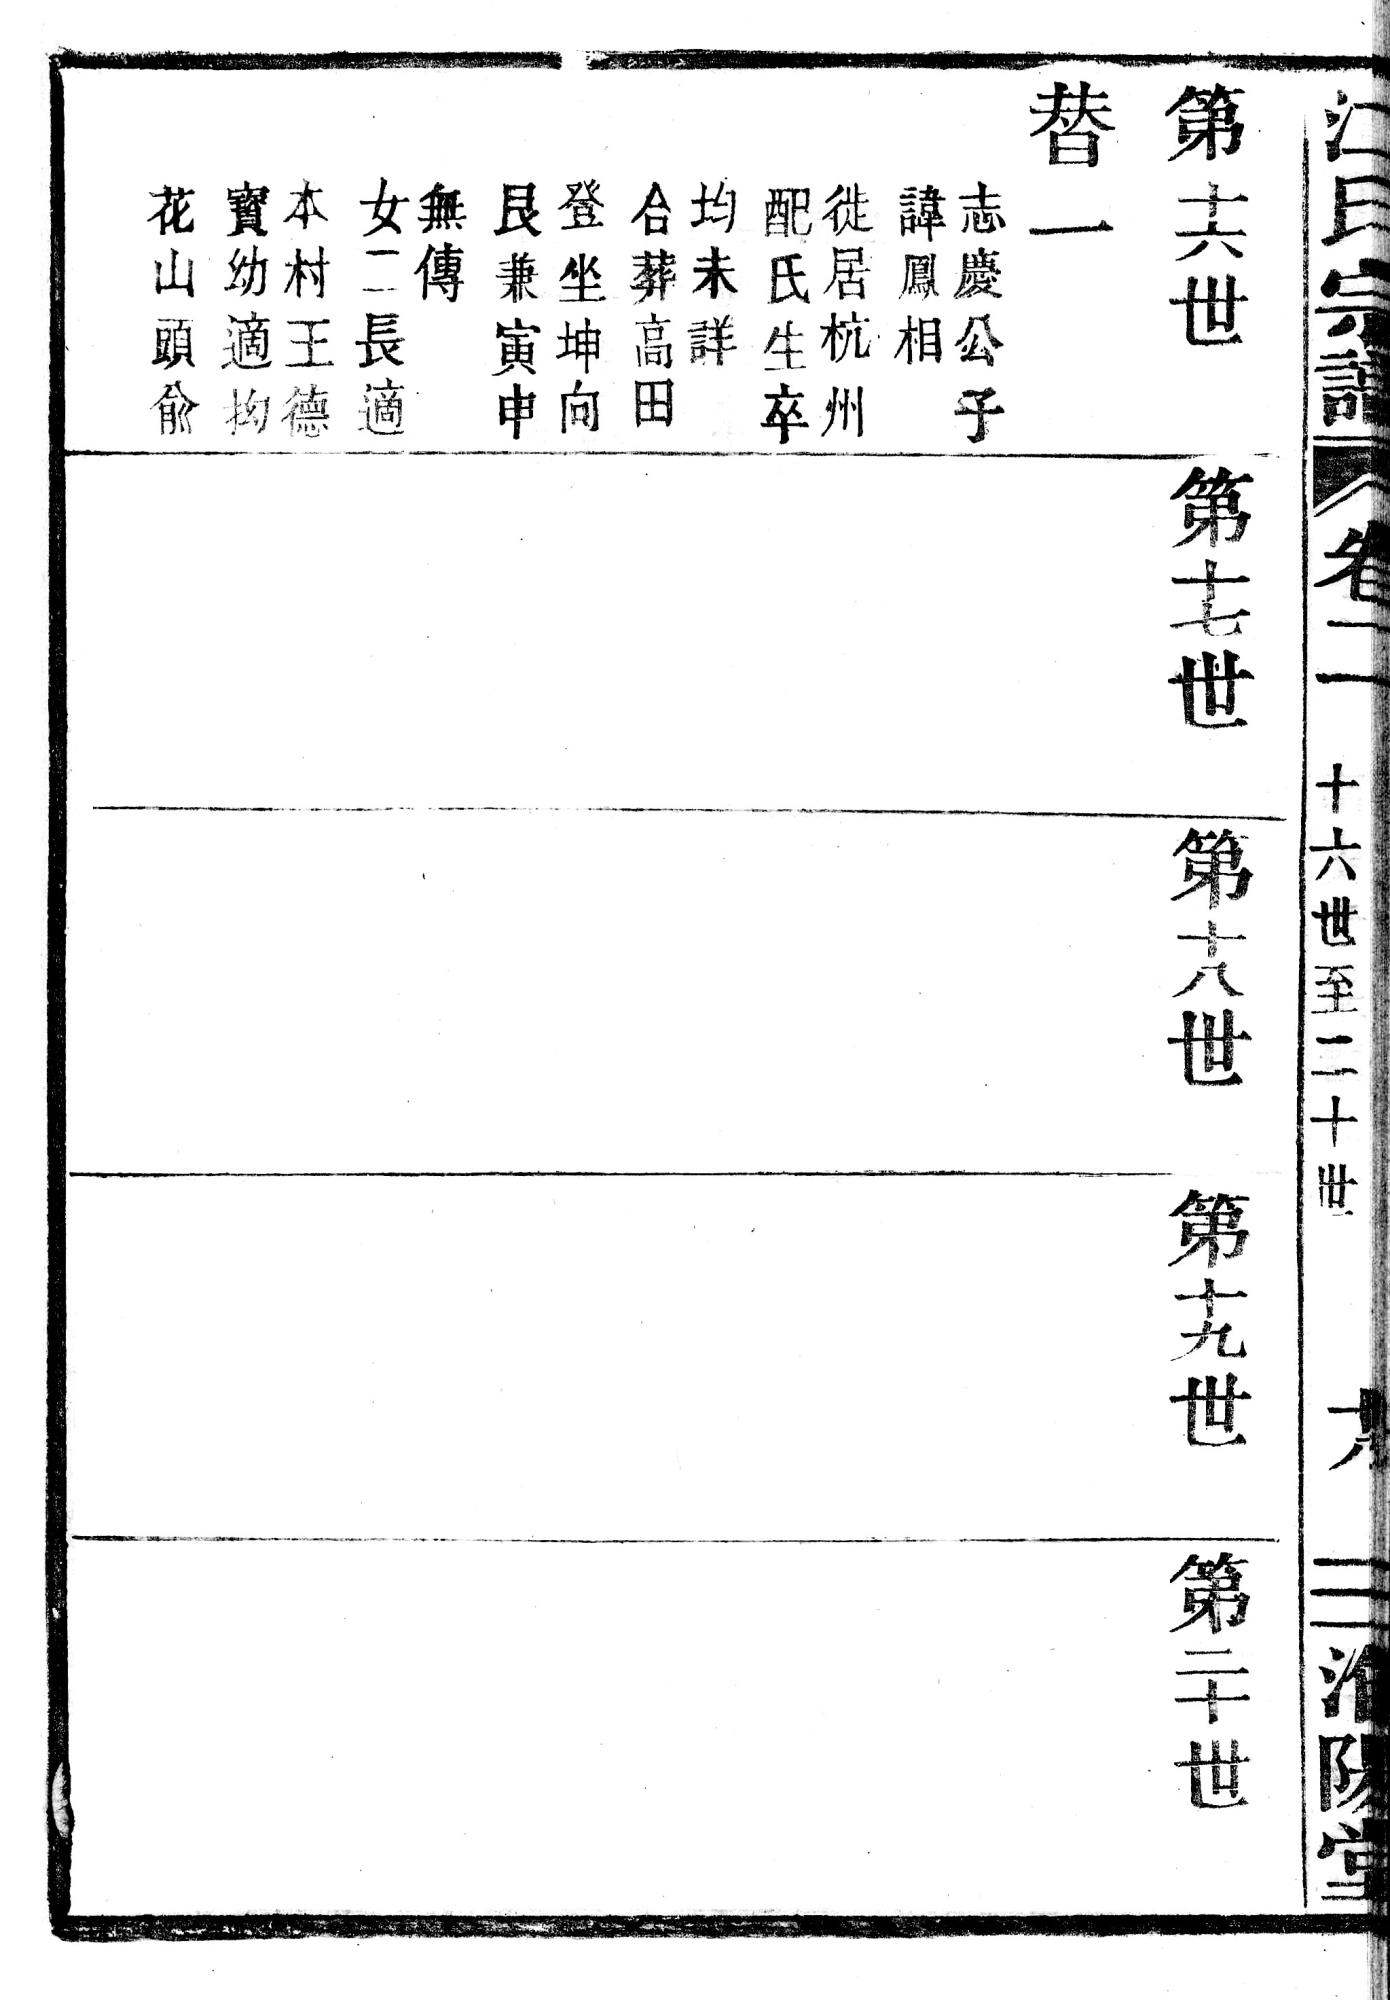 江氏宗譜
卷二
十六世至二十世
淮陽堂
第十六世
替一
志慶公子
諱鳳相
徙居杭州
配氏生卒
均未詳
合葬高田
登坐坤向
艮兼寅申
無傳
女二長適
本村王德
寶幼適拗
花山頭俞
第十七世
第十八世
第十九世
第二十世